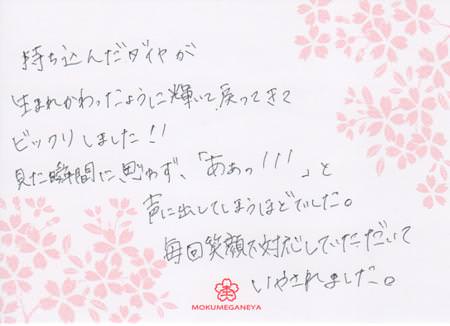 持ち込んだダイヤが
生まれかわったように輝いて戻ってきて
ビックリしました!!
見た瞬間に思わず、「ああっ!!!」と
声に出してしまうほどでした。
毎回笑顔で対応していただいて
いやされました。
MOKUMEGANEYA